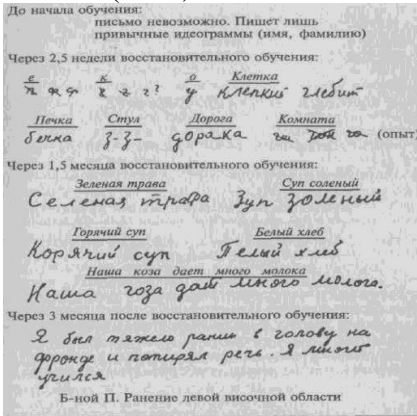 До начала обучения:
письмо невозможно. Пишет лишь
привычные идеограммы (имя, фамилию)
Через 2,5 недели восстановительного обучения:
е к о Клетка
у клепкий глебит
Печка Стул Дорога Комната
бечка З-З- дорака (опыт)
Через 1,5 месяца восстановительного обучения:
Зеленая трава Суп соленый
Селеная трафа Зуп золеный
Горячий суп Белый хлеб
Корячий суп Пелый хлеб
Наша коза дает много молока
Наша гоза дает много молога.
Через 3 месяца после восстановительного обучения:
Я был тяжело ранин в голову на
фронде и потирял речь. Я много
учился
Б-ной П. Ранение левой височной области